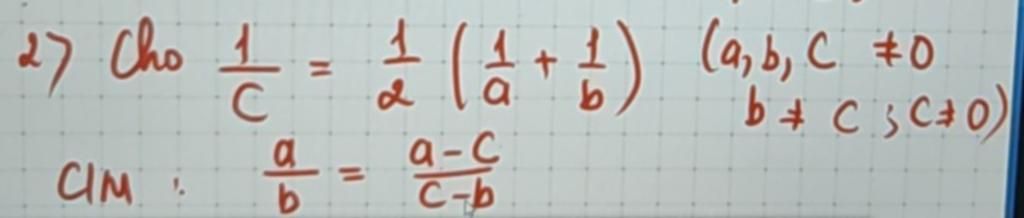 2) Cho 1/C = 1/2 (1/a + 1/b) (a, b, C ≠ 0
b ≠ C ; C ≠ 0)
CM : a/b = a-C/C-b